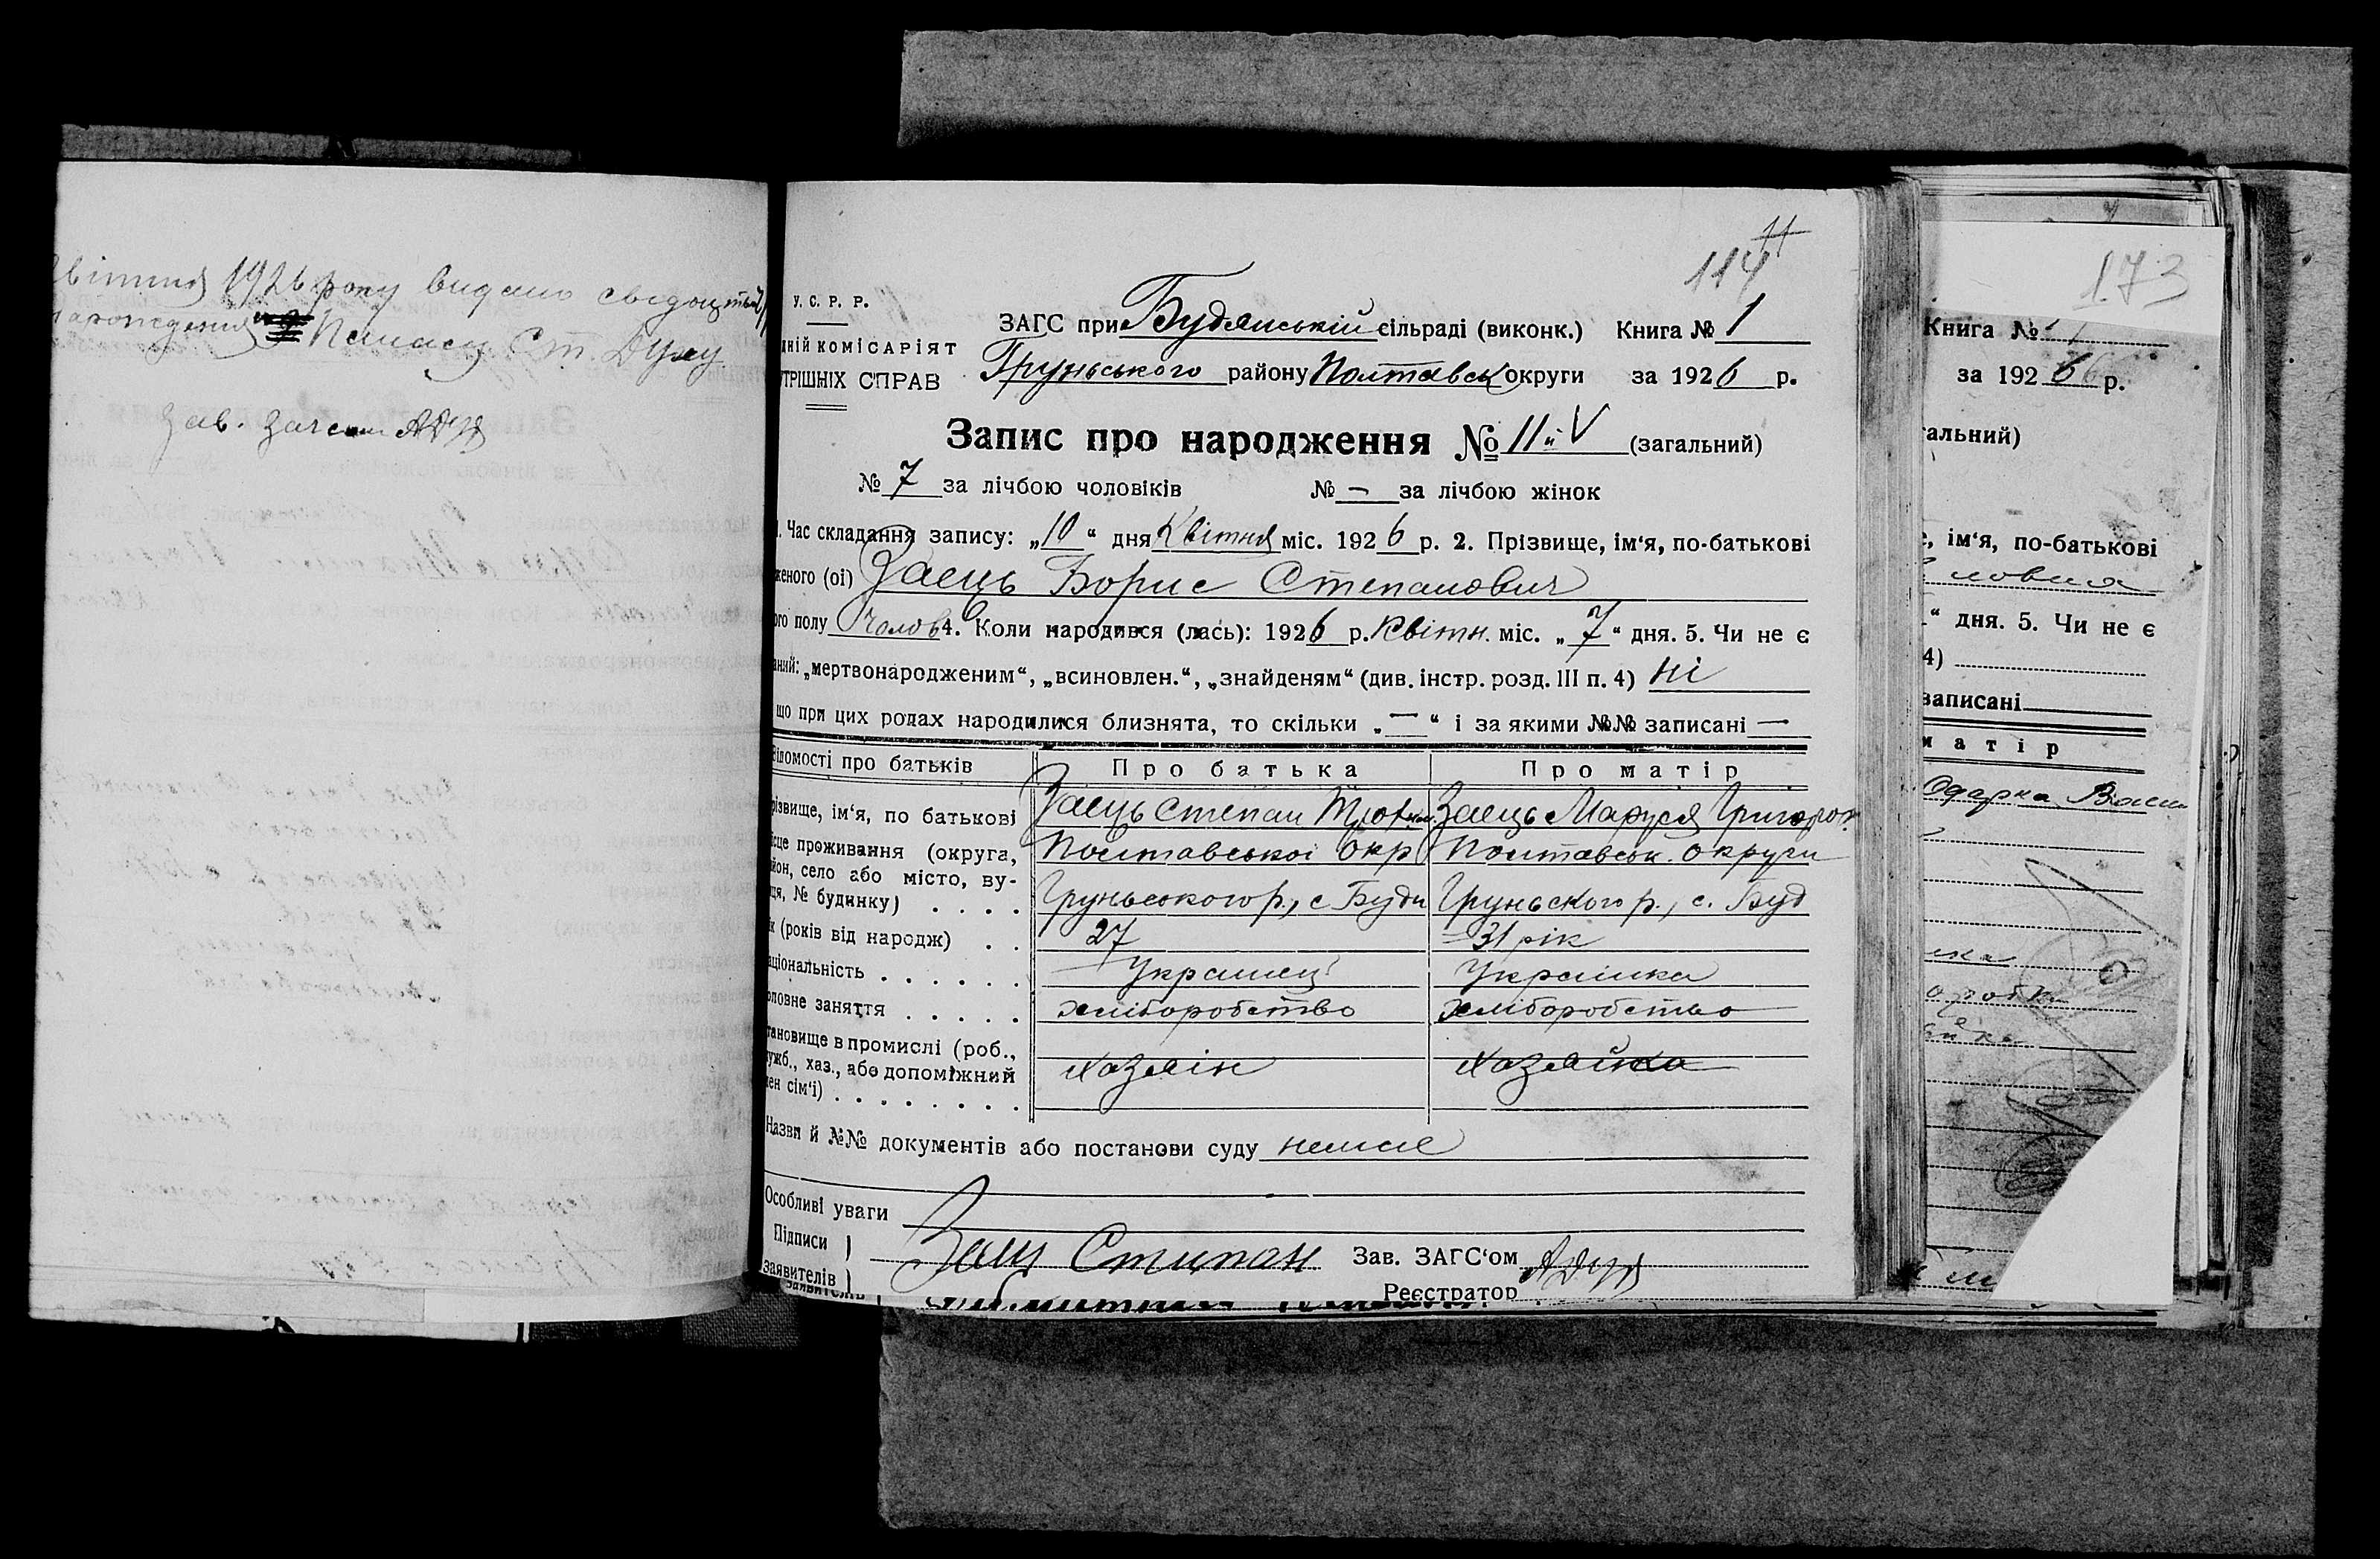 1926 року видано свідоцтво
Панасу Ст. Духу
Зав. Загсом
11
114
У. С. Р. Р.
ЗАГС при Будянській сільраді (виконк.) Книга № 1
дній КОМІСАРІЯТ
ТРІШНІХ СПРАВ
Груньського району Полтавськ округи за 1926 р.
Запис про народження № 11й V (загальний)
№ 7 за лічбою чоловіків № – за лічбою жінок
1. Час складання запису: „10“ дня Квітня міс. 1926 р. 2. Прізвище, ім‘я, по-батькові
женого (ої) Заець Борис Степанович
ого полу Чолов 4. Коли народився (лась): 1926 р. Квітн. міс. „7“ дня. 5. Чи не є
аний: „мертвонародженим“, „всиновлен.“, „знайденям“ (див. інстр. розд. III п. 4) ні
що при цих родах народилися близнята, то скільки „—“ і за якими №№ записані —
ідомості про батьків Про батька Про матір
різвище, ім‘я, по батькові Заець Степан Заець Маруся
ісце проживання (округа, Полтавської Окр Полтавськ. округи
йон, село або місто, ву-
ця, № будинку) . . . . Груньського р., с Буди Груньского р., с. Буд
ік (років від народж) . . 27 31 рік
аціональність . . . . . . Українец Українка
оловне заняття . . . . . хліборобство хліборобство
тановище в промислі (роб.,
ужб., хаз., або допоміжний Хазяін Хазяйка
лен сім‘ї) . . . . . . . .
Назви й №№ документів або постанови суду немае
Особливі уваги
Підписи }
заявителів } Заиц Стипан Зав. ЗАГС‘ом
Реєстратор
заявителів
173
Книга № 1
за 1926 р.
гальний)
е, ім‘я, по-батькові
“ дня. 5. Чи не є
4)
записані
матір
Одарка Васи